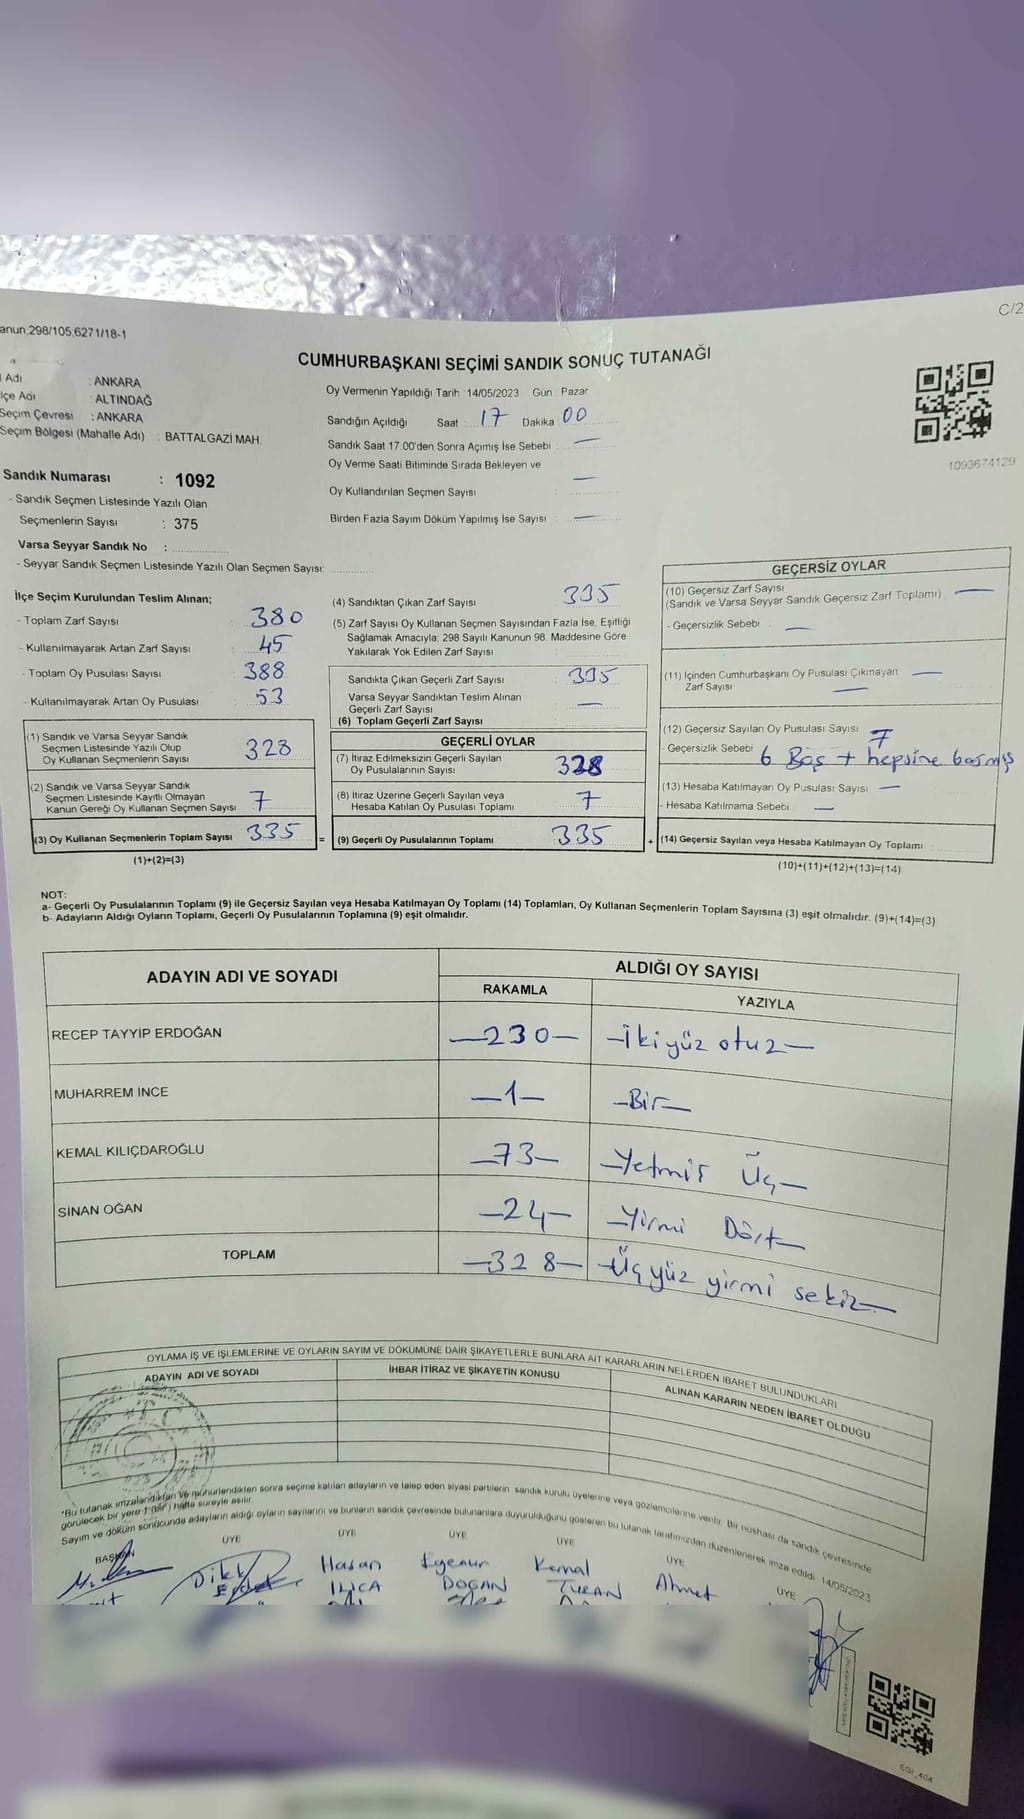 C/2
anun.298/105,6271/18-1
CUMHURBAŞKANI SEÇİMİ SANDIK SONUÇ TUTANAĞI
l Adı : ANKARA
lçe Adı : ALTINDAĞ
Seçim Çevresi : ANKARA
Seçim Bölgesi (Mahalle Adı) : BATTALGAZİ MAH.
Sandık Numarası : 1092
- Sandık Seçmen Listesinde Yazılı Olan
Seçmenlerin Sayısı : 375
Varsa Seyyar Sandık No :
- Seyyar Sandık Seçmen Listesinde Yazılı Olan Seçmen Sayısı:
Oy Vermenin Yapıldığı Tarih :14/05/2023 Gün : Pazar
Sandığın Açıldığı Saat : 17 Dakika : 00
Sandık Saat 17:00'den Sonra Açımış İse Sebebi : —
Oy Verme Saati Bitiminde Sırada Bekleyen ve
Oy Kullandırılan Seçmen Sayısı : —
Birden Fazla Sayım Döküm Yapılmış İse Sayısı : —
1093674129
İlçe Seçim Kurulundan Teslim Alınan;
- Toplam Zarf Sayısı : 380
- Kullanılmayarak Artan Zarf Sayısı : 45
- Toplam Oy Pusulası Sayısı : 388
- Kullanılmayarak Artan Oy Pusulası : 53
(1) Sandık ve Varsa Seyyar Sandık
Seçmen Listesinde Yazılı Olup
Oy Kullanan Seçmenlerin Sayısı 328
(2) Sandık ve Varsa Seyyar Sandık
Seçmen Listesinde Kayıtlı Olmayan
Kanun Gereği Oy Kullanan Seçmen Sayısı 7
(3) Oy Kullanan Seçmenlerin Toplam Sayısı 335 =
(1)+(2)=(3)
(4) Sandıktan Çıkan Zarf Sayısı : 335
(5) Zarf Sayısı Oy Kullanan Seçmen Sayısından Fazla İse, Eşitliği
Sağlamak Amacıyla; 298 Sayılı Kanunun 98. Maddesine Göre
Yakılarak Yok Edilen Zarf Sayısı :
Sandıkta Çıkan Geçerli Zarf Sayısı : 335
Varsa Seyyar Sandıktan Teslim Alınan
Geçerli Zarf Sayısı : —
(6) Toplam Geçerli Zarf Sayısı :
GEÇERLİ OYLAR
(7) İtiraz Edilmeksizin Geçerli Sayılan
Oy Pusulalarının Sayısı : 328
(8) İtiraz Üzerine Geçerli Sayılan veya
Hesaba Katılan Oy Pusulası Toplamı : 7
(9) Geçerli Oy Pusulalarının Toplamı : 335 +
GEÇERSİZ OYLAR
(10) Geçersiz Zarf Sayısı : —
(Sandık ve Varsa Seyyar Sandık Geçersiz Zarf Toplamı)
- Geçersizlik Sebebi : —
(11) İçinden Cumhurbaşkanı Oy Pusulası Çıkmayan : —
Zarf Sayısı —
(12) Geçersiz Sayılan Oy Pusulası Sayısı : 7
- Geçersizlik Sebebi : 6 Boş + hepsine basmış
(13) Hesaba Katılmayan Oy Pusulası Sayısı : —
- Hesaba Katılmama Sebebi : —
(14) Geçersiz Sayılan veya Hesaba Katılmayan Oy Toplamı :
(10)+(11)+(12)+(13)=(14)
NOT:
a- Geçerli Oy Pusulalarının Toplamı (9) ile Geçersiz Sayılan veya Hesaba Katılmayan Oy Toplamı (14) Toplamları, Oy Kullanan Seçmenlerin Toplam Sayısına (3) eşit olmalıdır. (9)+(14)=(3)
b- Adayların Aldığı Oyların Toplamı, Geçerli Oy Pusulalarının Toplamına (9) eşit olmalıdır.
ADAYIN ADI VE SOYADI
ALDIĞI OY SAYISI
RAKAMLA YAZIYLA
RECEP TAYYİP ERDOĞAN —230— —İkiyüz otuz—
MUHARREM İNCE —1— —Bir—
KEMAL KILIÇDAROĞLU —73— —Yetmiş Üç—
SİNAN OĞAN —24— —Yirmi Dört—
TOPLAM —328— —Üçyüz yirmi sekiz—
OYLAMA İŞ VE İŞLEMLERİNE VE OYLARIN SAYIM VE DÖKÜMÜNE DAİR ŞİKAYETLERLE BUNLARA AİT KARARLARIN NELERDEN İBARET BULUNDUKLARI
ADAYIN ADI VE SOYADI İHBAR İTİRAZ VE ŞİKAYETİN KONUSU ALINAN KARARIN NEDEN İBARET OLDUĞU
T.C.
*Bu tutanak imzalandıktan ve mühürlendikten sonra seçime katılan adayların ve talep eden siyasi partilerin sandık kurulu üyelerine veya gözlemcilerine verilir. Bir nüshası da sandık çevresinde
görülecek bir yere 1 (bir) hafta süreyle asılır.
Sayım ve döküm sonucunda adayların aldığı oyların sayılarını ve bunların sandık çevresinde bulunanlara duyurulduğunu gösteren bu tutanak tarafımızdan düzenlenerek imza edildi. 14/05/2023
BAŞKAN ÜYE ÜYE ÜYE ÜYE ÜYE ÜYE
Hasan Kemal Ahmet
ILICA DOĞAN TURAN